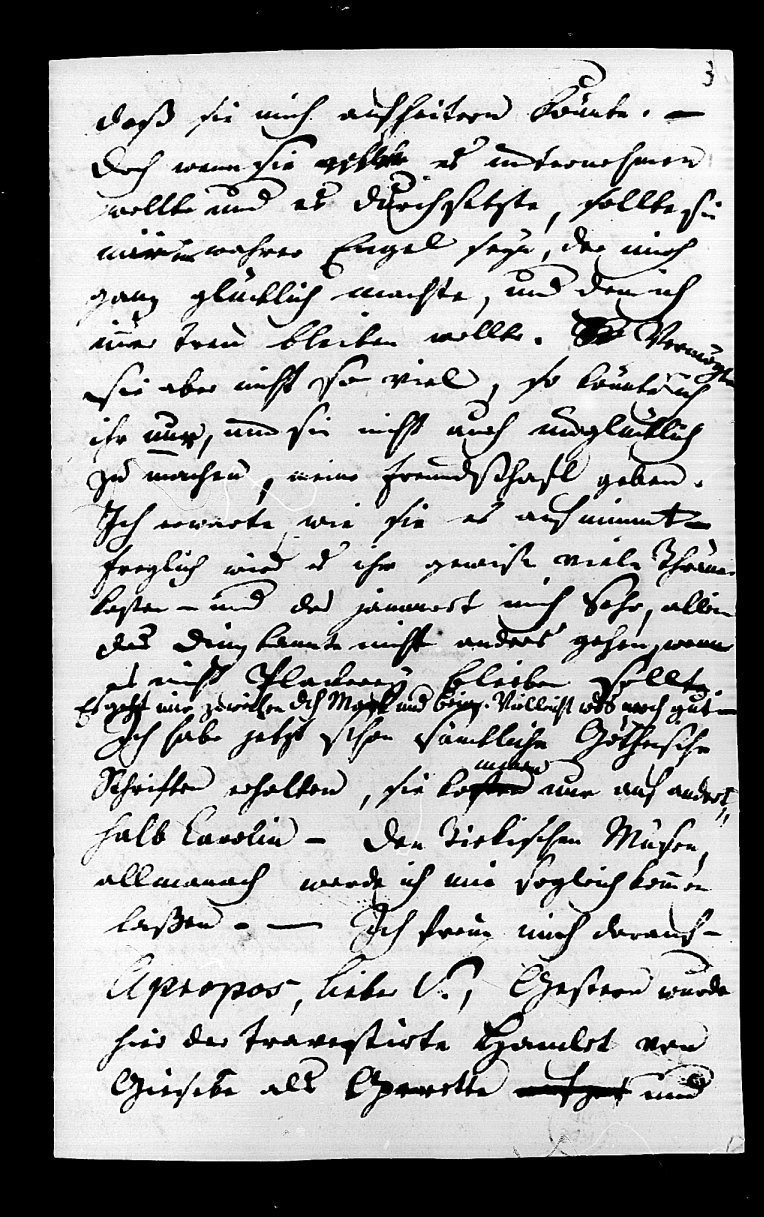 3
daß sie mich aufheitern könnte. —
Doch wenn sie es unternehmen
wollte und es durchsetzte, sollte sie
mir ein wahrer Engel seyn, der mich
ganz glücklich machte, und dem ich
im̅er treu bleiben wollte. Vermöchte
sie aber nicht so viel, so könnte ich
ihr nur, um sie nicht auch unglücklich
zu machen, meine Freundschaft geben.
Ich erwarte wie sie es aufnimmt –
freylich wird es ihr gewiß viele Thränen
kosten – und das jammert mich sehr, allein
das Ding kannte nicht anders gehen, wenn
es nicht Plackerey bleiben sollte,
Es geht mir zuweilen dch Mark und Bein. Vielleicht wds noch gut –
Ich habe jetzt schon sämtliche Göthesche
Schriften erhalten, sie kommen nur auf andert„
halb Carolin – Den Tiekischen Musen„
allmanach werde ich mir sogleich kom̅en
laßen. — Ich freue mich darauf –
Apropos, lieber S., Gestern wurde
hier der travestirte Hamlet von
Giesike als Operette und